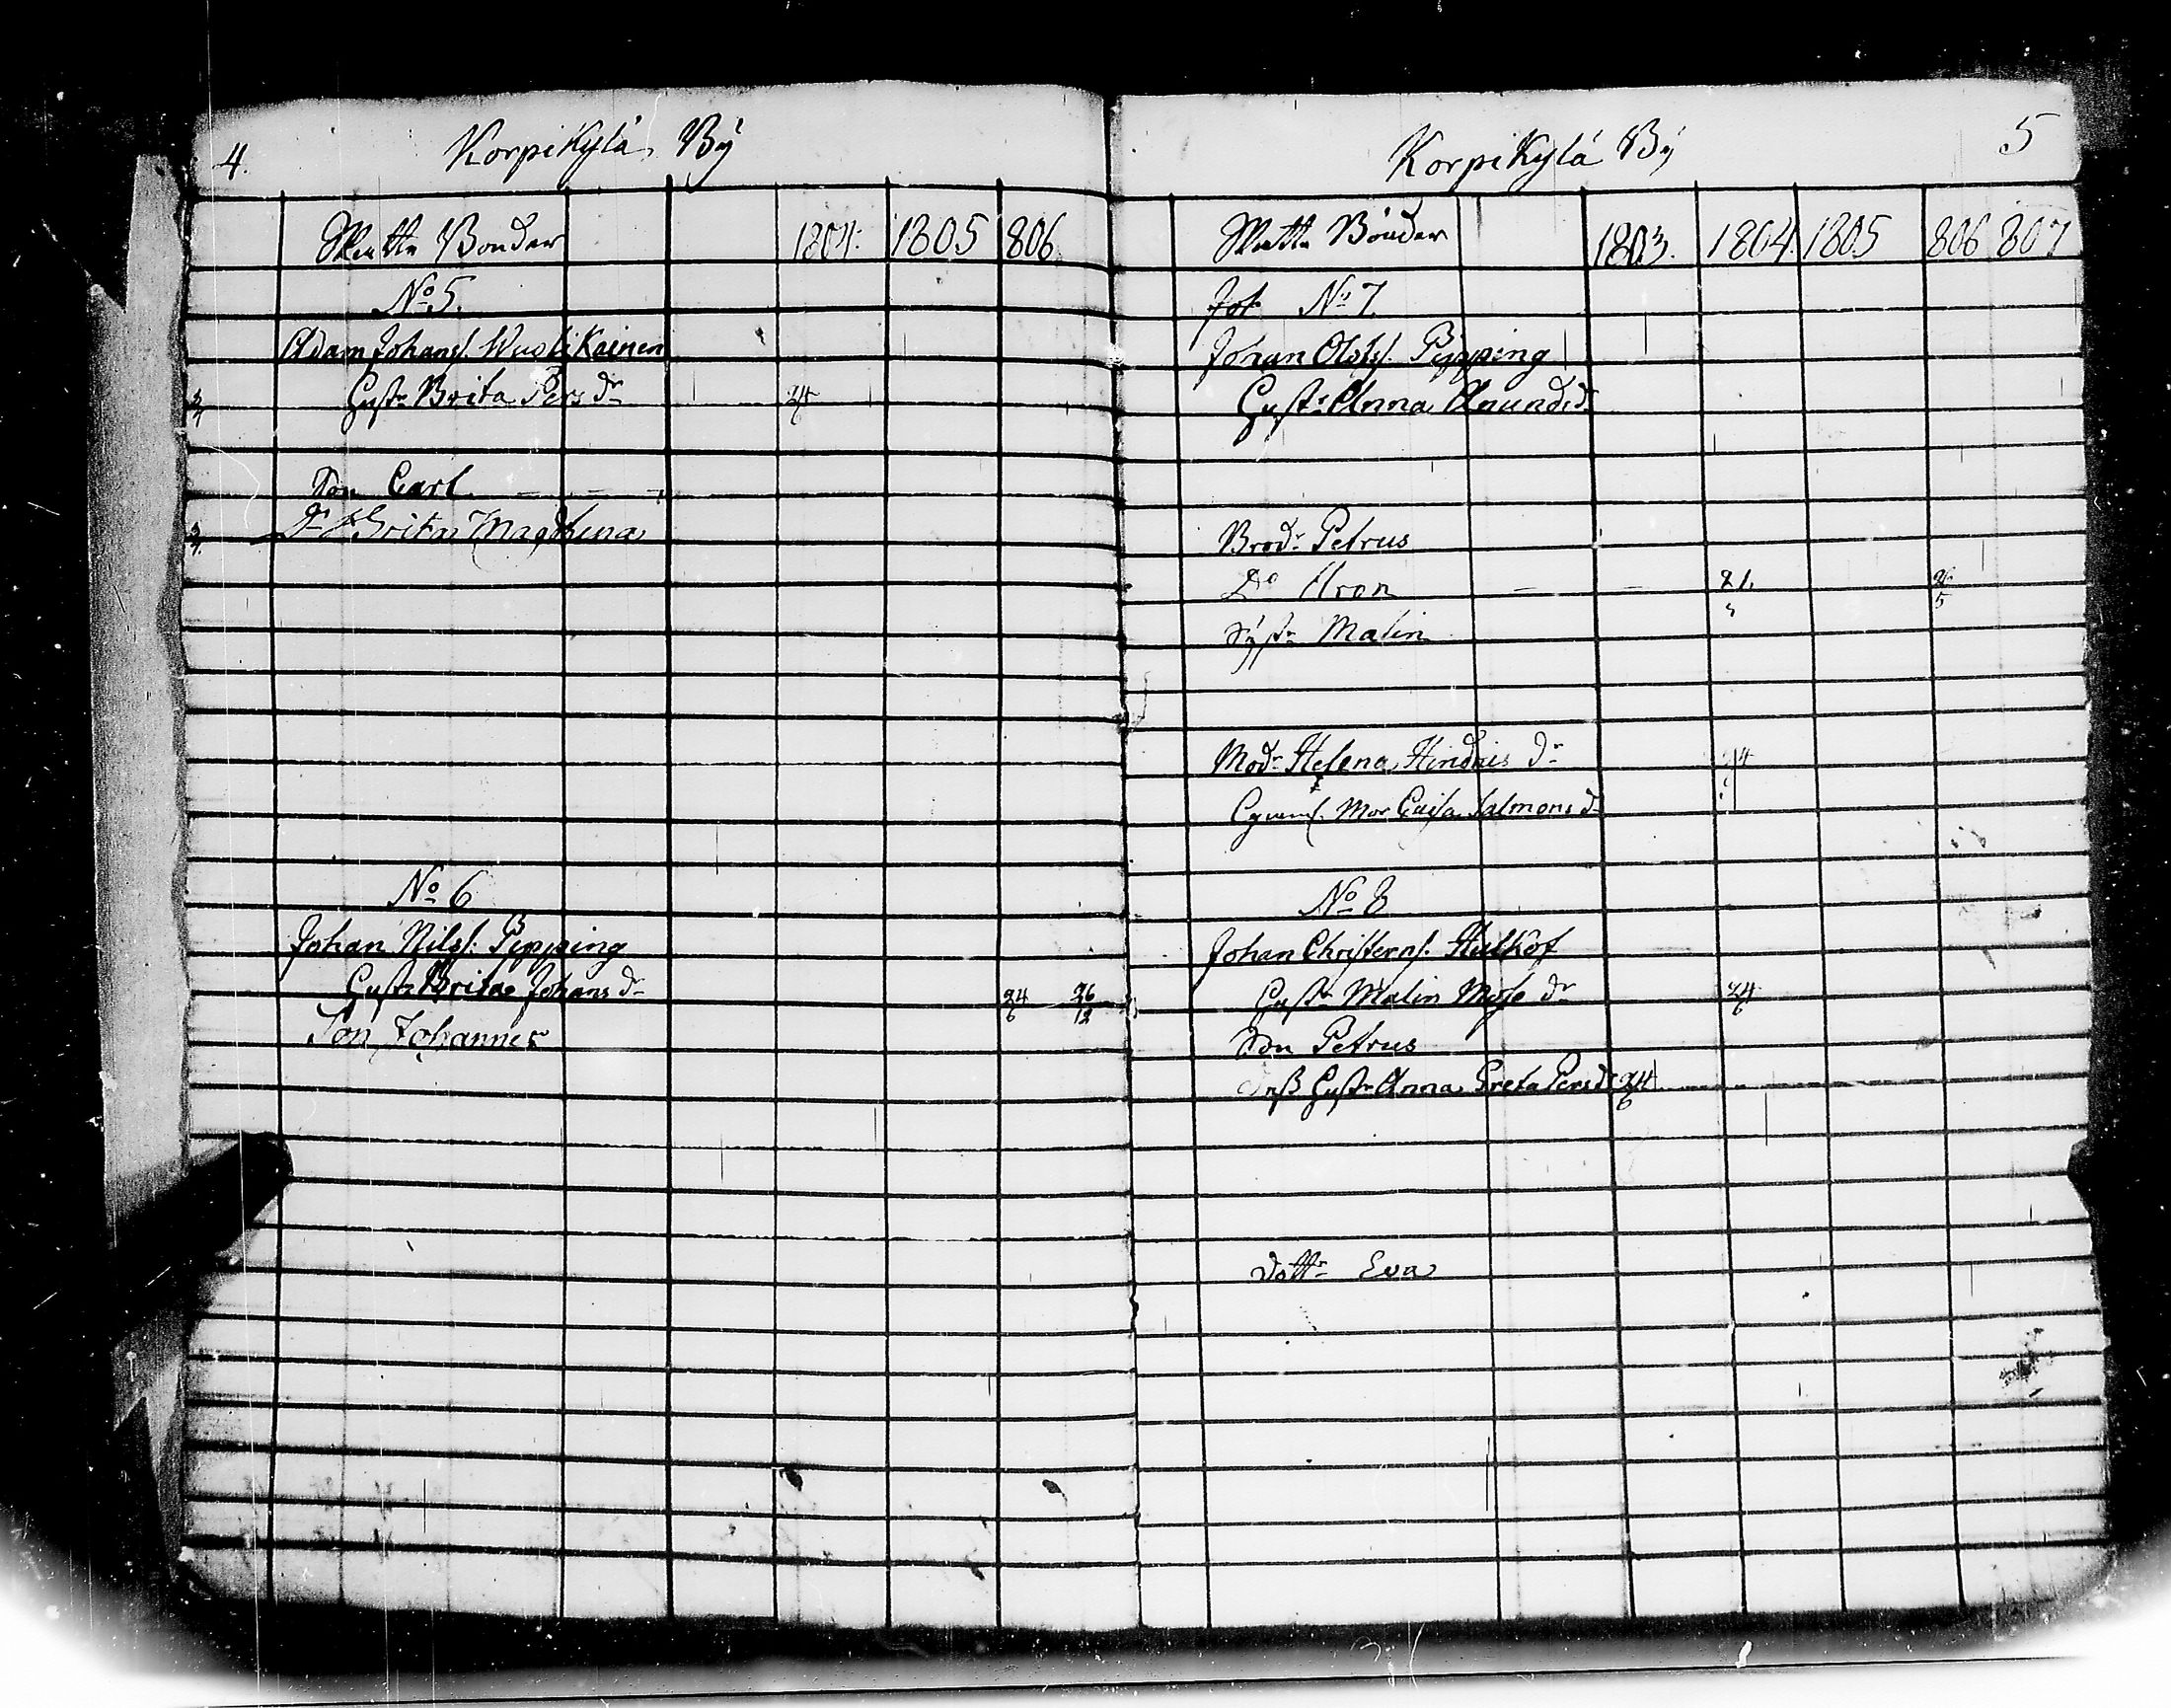 4. Korpikylä By
Skatte Bonder 1804. 1805 806
No 5.
Adam Johans. Wuolikainen
Hustr. Brita Pers dr 24/6
Son Carl
Dr Brita Magdlena
No 6
Johan Nilss. Pipping
Hustr Brita Johans dr 24/6 26/12
Son Johannes
Korpikylä By 5
Skatte Bönder 1803. 1804. 1805 806 807
No 7.
Johan Olofss. Pipping
Hustr. Anna Anundsdr
Brodr Petrus
Do Aron
Systr Malin
Modr Helena Hindris dr
Mor Caisa Salmons dr
No 8
Johan Christerns. Hulkof
Hustr Malin Mose dr 24/6
Son Petrus
Dess Hustr Anna Greta Persdr 24/6
Dottr Eva